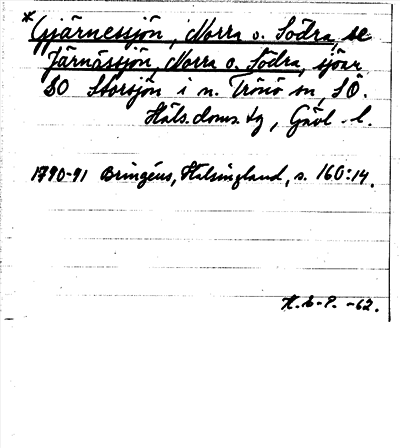 * Gjärnessjön, Norra o. Södra, se
Järnässjön, Norra o. Södra, sjöar
SO Storsjön i n. Trönö sn, SÖ.
Häls. doms. tg, Gävl. l.
1790-91 Bringéus, Hälsingland, s. 160:14.
-62.